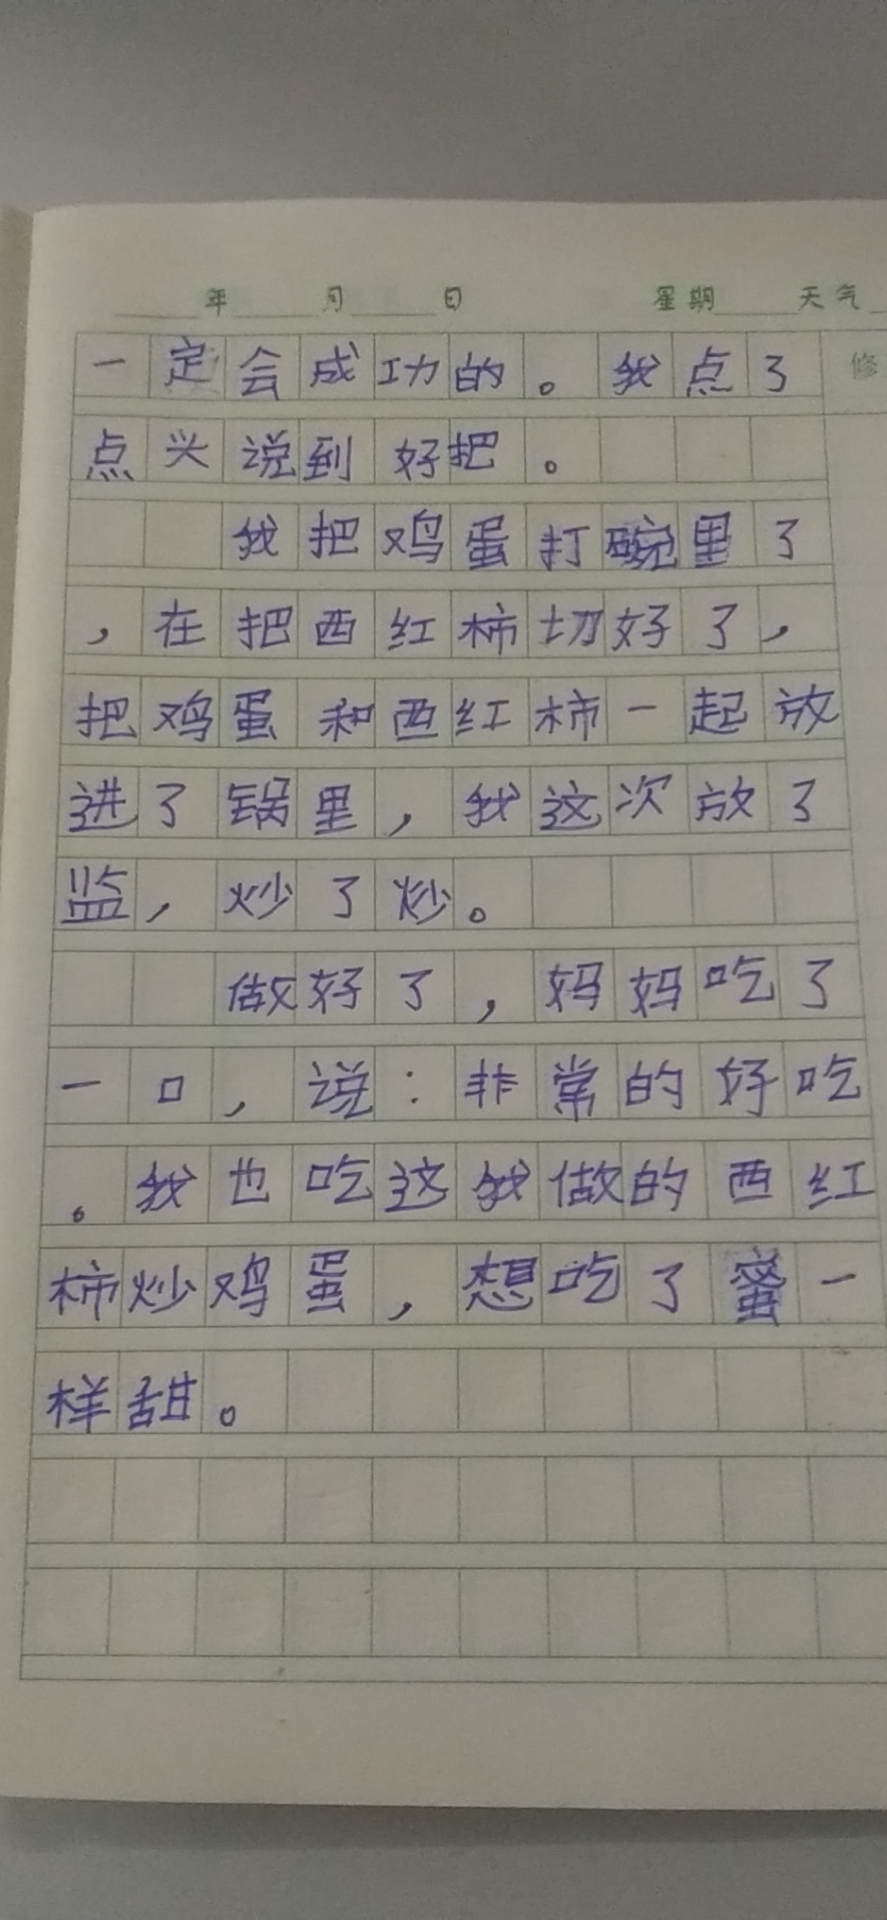 年 月 日 星期 天气
一定会成功的。我点了 修
点头说到好把。
我把鸡蛋打碗里了
，在把西红柿切好了，
把鸡蛋和西红柿一起放
进了锅里，我这次放了
监，炒了炒。
做好了，妈妈吃了
一口，说：非常的好吃
。我也吃这我做的西红
柿炒鸡蛋，想吃了蜜一
样甜。